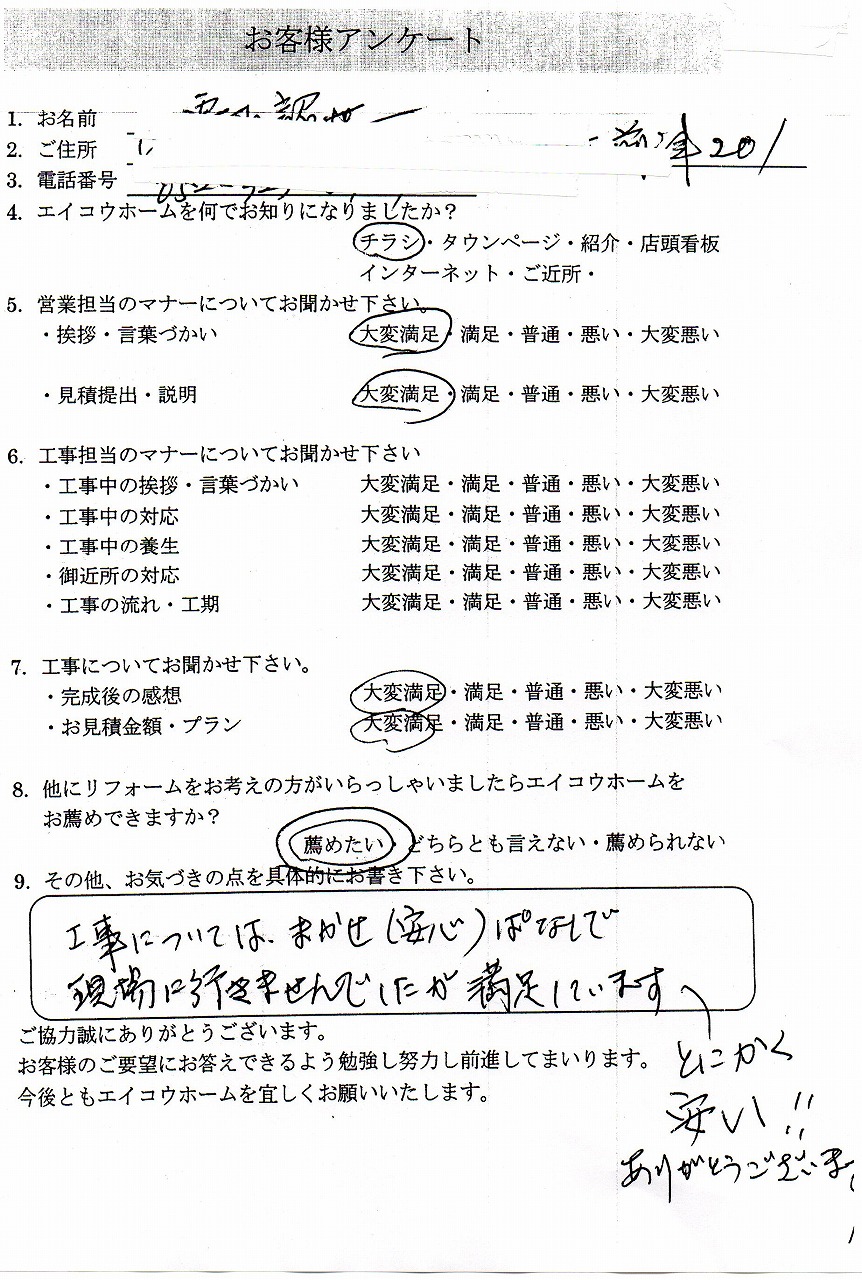 お客様アンケート
1. お名前
2. ご住所 201
3. 電話番号
4. エイコウホームを何でお知りになりましたか？
チラシ・タウンページ・紹介・店頭看板
インターネット・ご近所・
5. 営業担当のマナーについてお聞かせ下さい。
・挨拶・言葉づかい 大変満足・満足・普通・悪い・大変悪い
・見積提出・説明 大変満足・満足・普通・悪い・大変悪い
6. 工事担当のマナーについてお聞かせ下さい
・工事中の挨拶・言葉づかい 大変満足・満足・普通・悪い・大変悪い
・工事中の対応 大変満足・満足・普通・悪い・大変悪い
・工事中の養生 大変満足・満足・普通・悪い・大変悪い
・御近所の対応 大変満足・満足・普通・悪い・大変悪い
・工事の流れ・工期 大変満足・満足・普通・悪い・大変悪い
7. 工事についてお聞かせ下さい。
・完成後の感想 大変満足・満足・普通・悪い・大変悪い
・お見積金額・プラン 大変満足・満足・普通・悪い・大変悪い
8. 他にリフォームをお考えの方がいらっしゃいましたらエイコウホームを
お薦めできますか？
薦めたい・どちらとも言えない・薦められない
9. その他、お気づきの点を具体的にお書き下さい。
工事については、まかせ(安心)ぱなしで
現場に行きませんでしたが満足しています
ご協力誠にありがとうございます。
お客様のご要望にお答えできるよう勉強し努力し前進してまいります。
今後ともエイコウホームを宜しくお願いいたします。
とにかく
安い!!
ありがとうございま